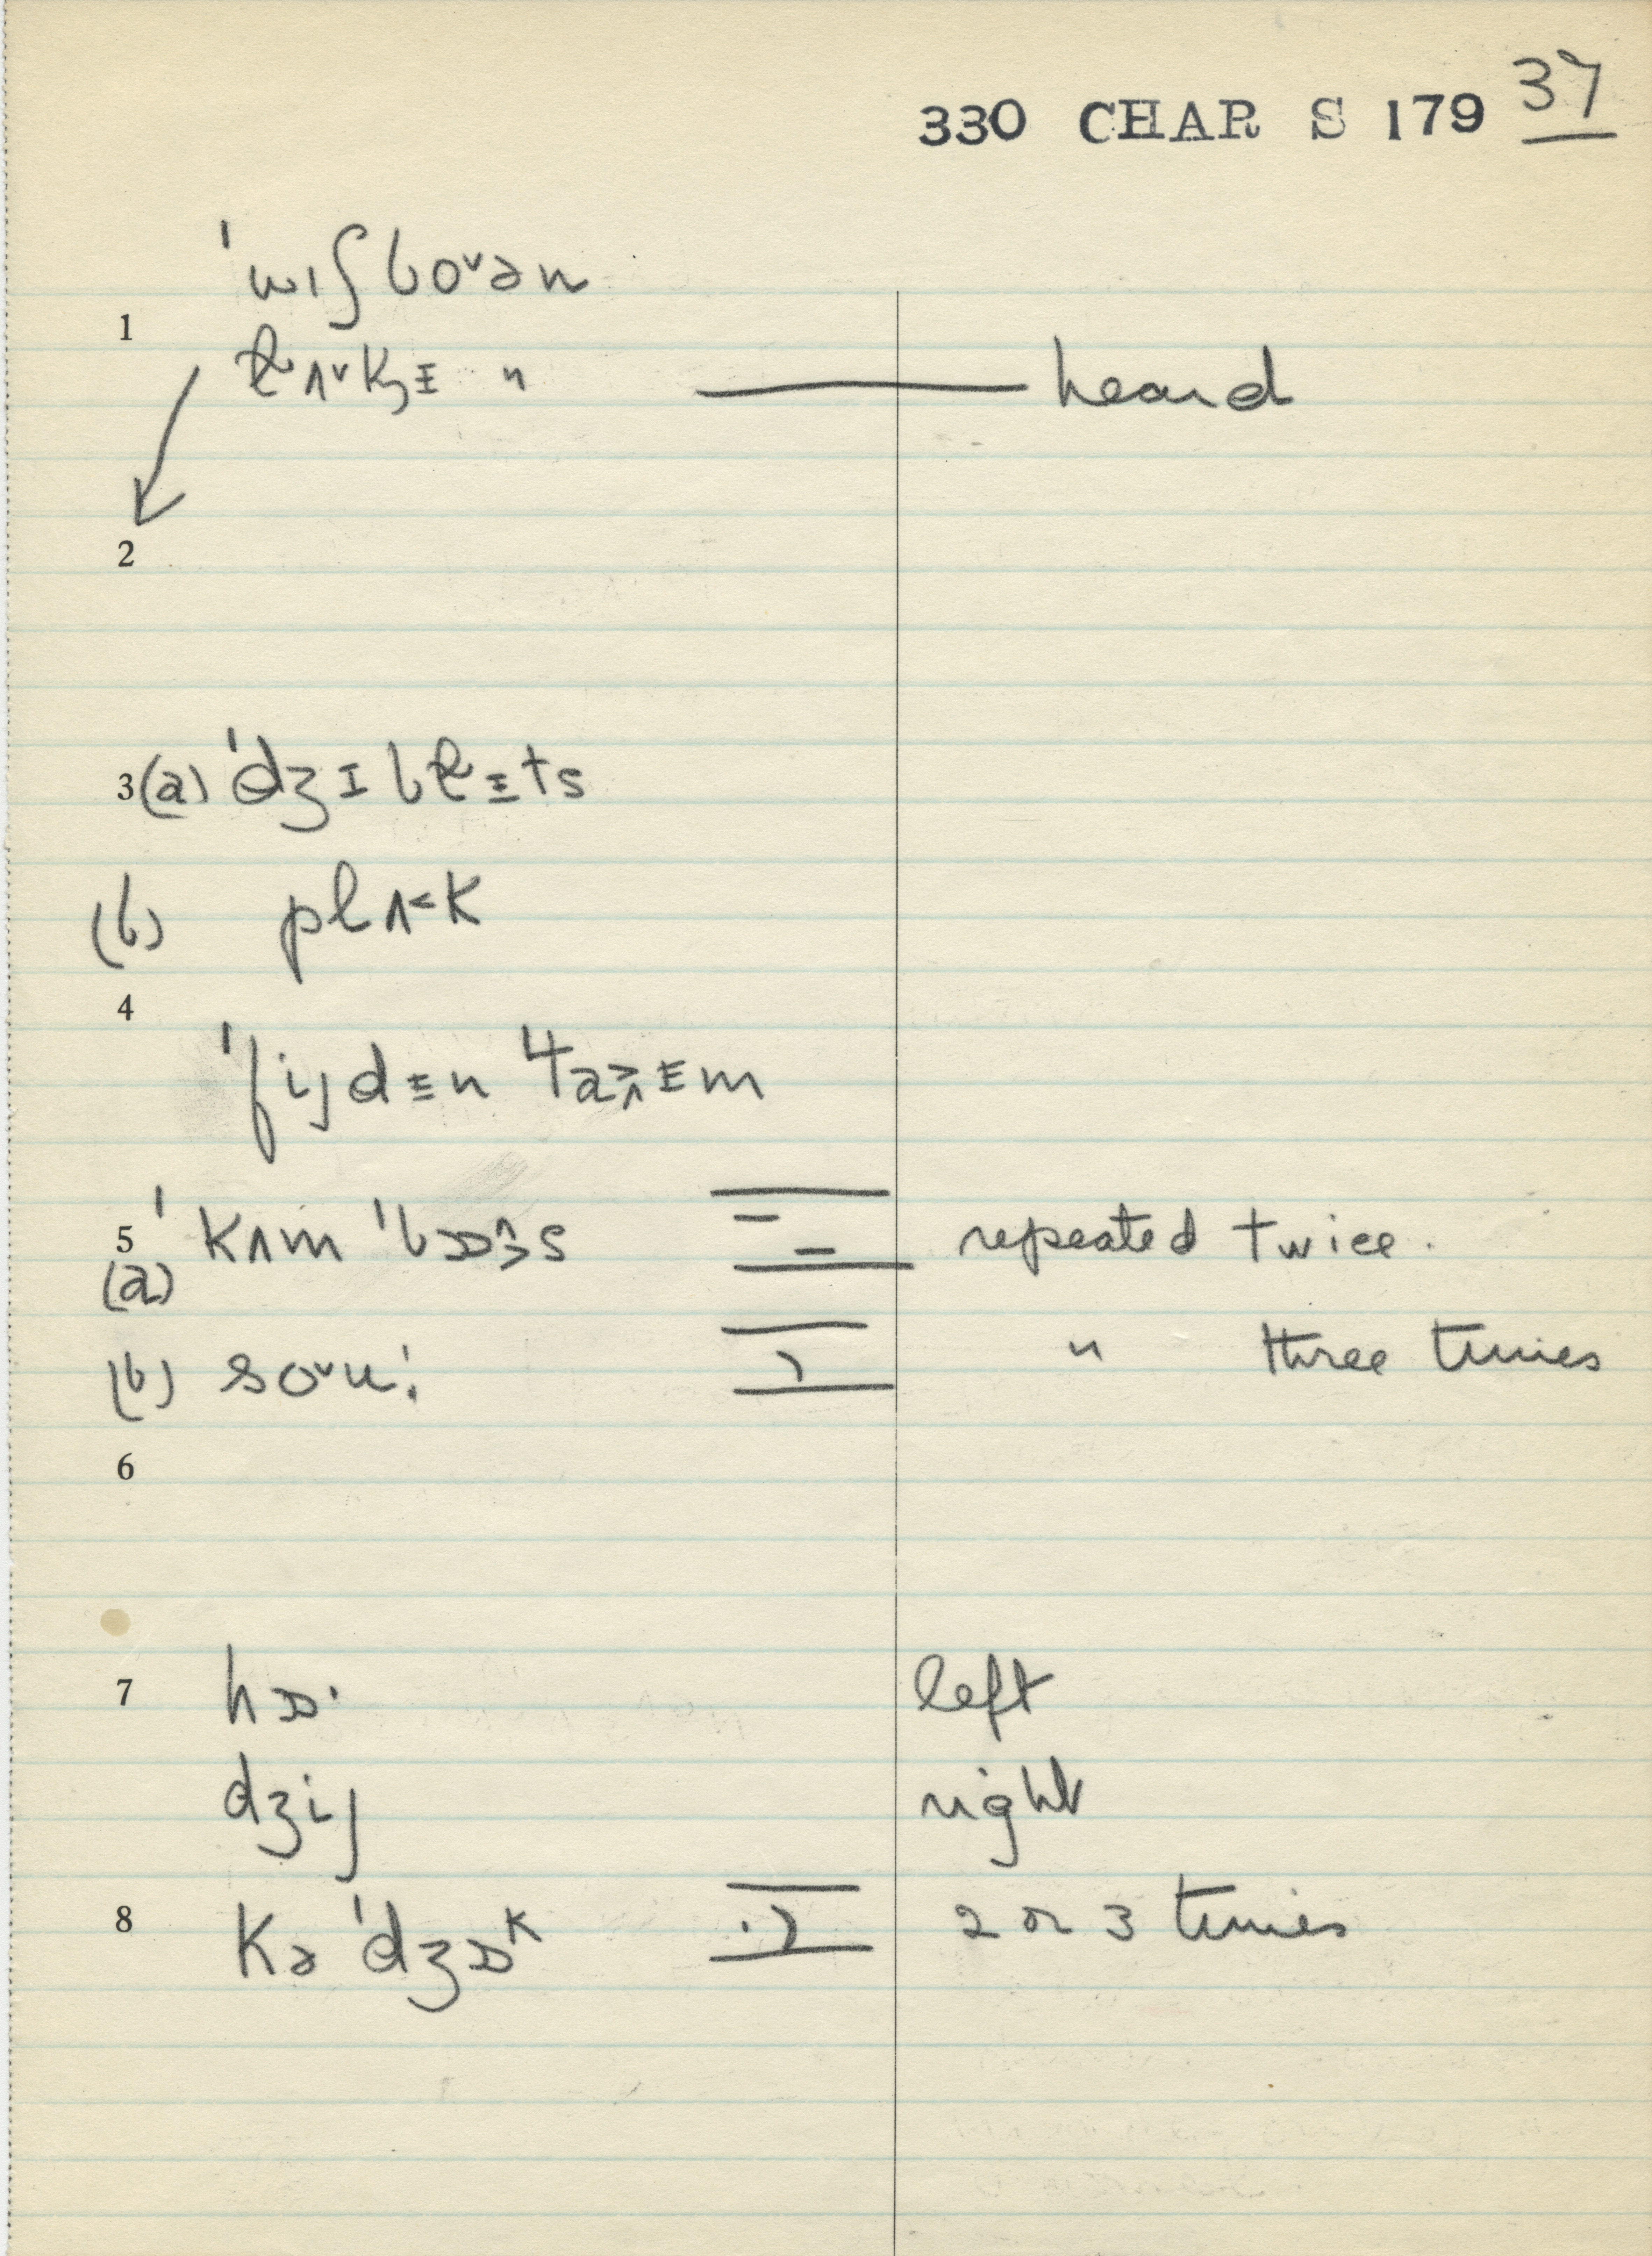 330 CHAR S 179 37
ˈwɪʃboˇən
1
ɫʌˇkɪ̵ " heard
2
3 (a) ˈdʒɪbɫɪ̵ts
(b) plʌ˂k
4
ˈfijdɪ̵n
5 ˈkʌm ˈbɒ˄˃s repeated twice.
(a)
(b) soˇu: " three times
6
7 hɒˑ left
dʒij right
8 kəˈdʒɒᵏ 2 or 3 times